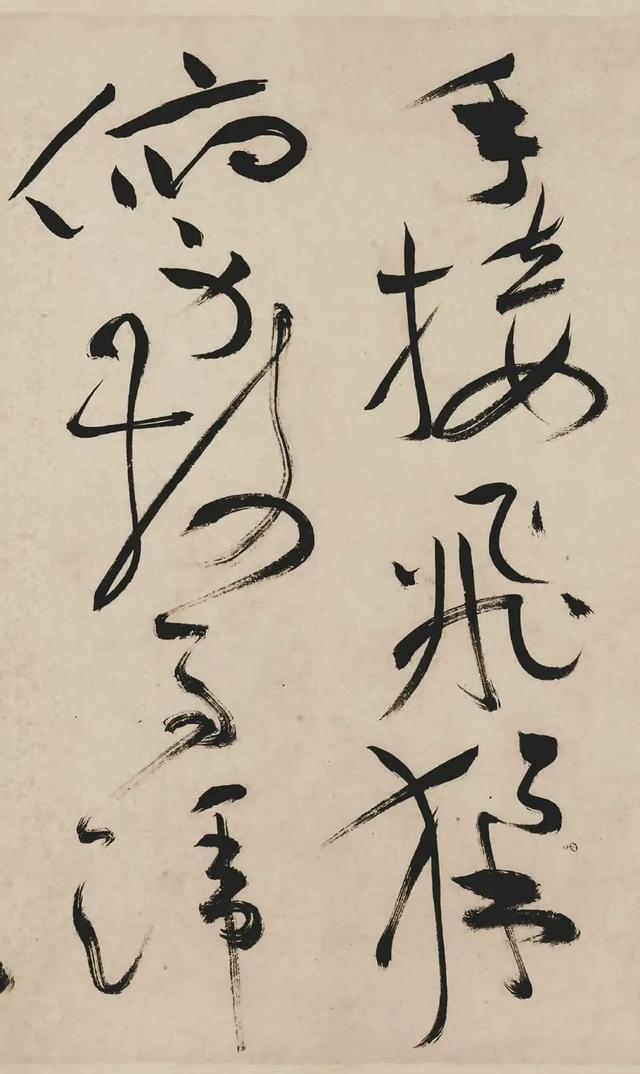 手接飛猱
俯身散馬蹄